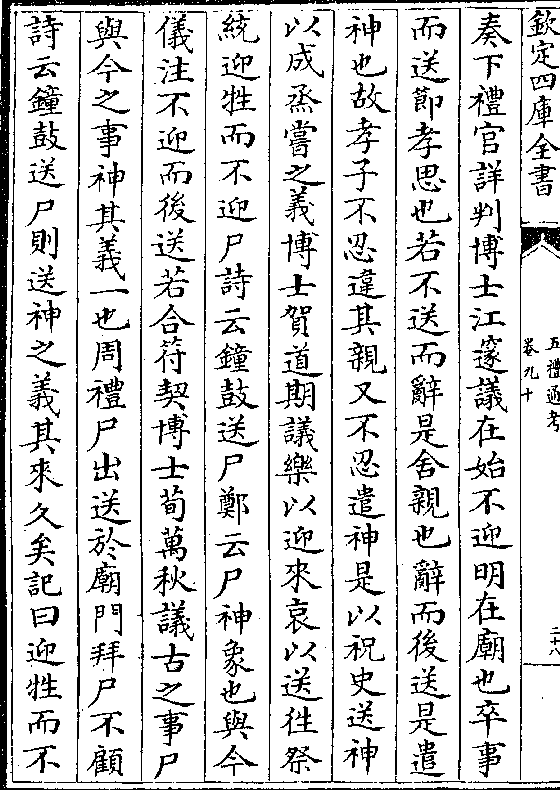 欽定四庫全書
五禮通考
卷九十
二十八
奏下禮官詳判博士江邃議在始不迎明在廟也卒事
而送節孝思也若不送而辭是舍親也辭而後送是遣
神也故孝子不忍違其親又不忍遣神是以祝史送神
以成烝嘗之義博士賀道期議樂以迎來哀以送徃祭
統迎牲而不迎尸詩云鐘鼓送尸鄭云尸神象也與今
儀注不迎而後送若合符契博士荀萬秋議古之事尸
與今之事神其義一也周禮尸出送於廟門拜尸不顧
詩云鐘鼓送尸則送神之義其來久矣記曰迎牲而不